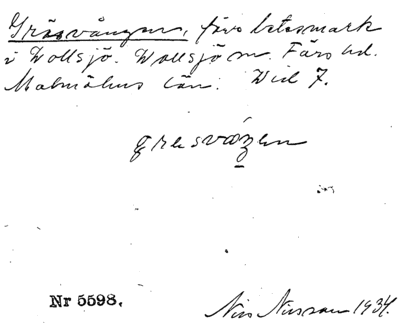 Gräsvången, förr betesmark
i Vollsjö. Vollsjö sn. Färs hd.
Malmöhus län. Vid 7.
gresvåzen
Nr 5598.
Nils Nilsson 1934.